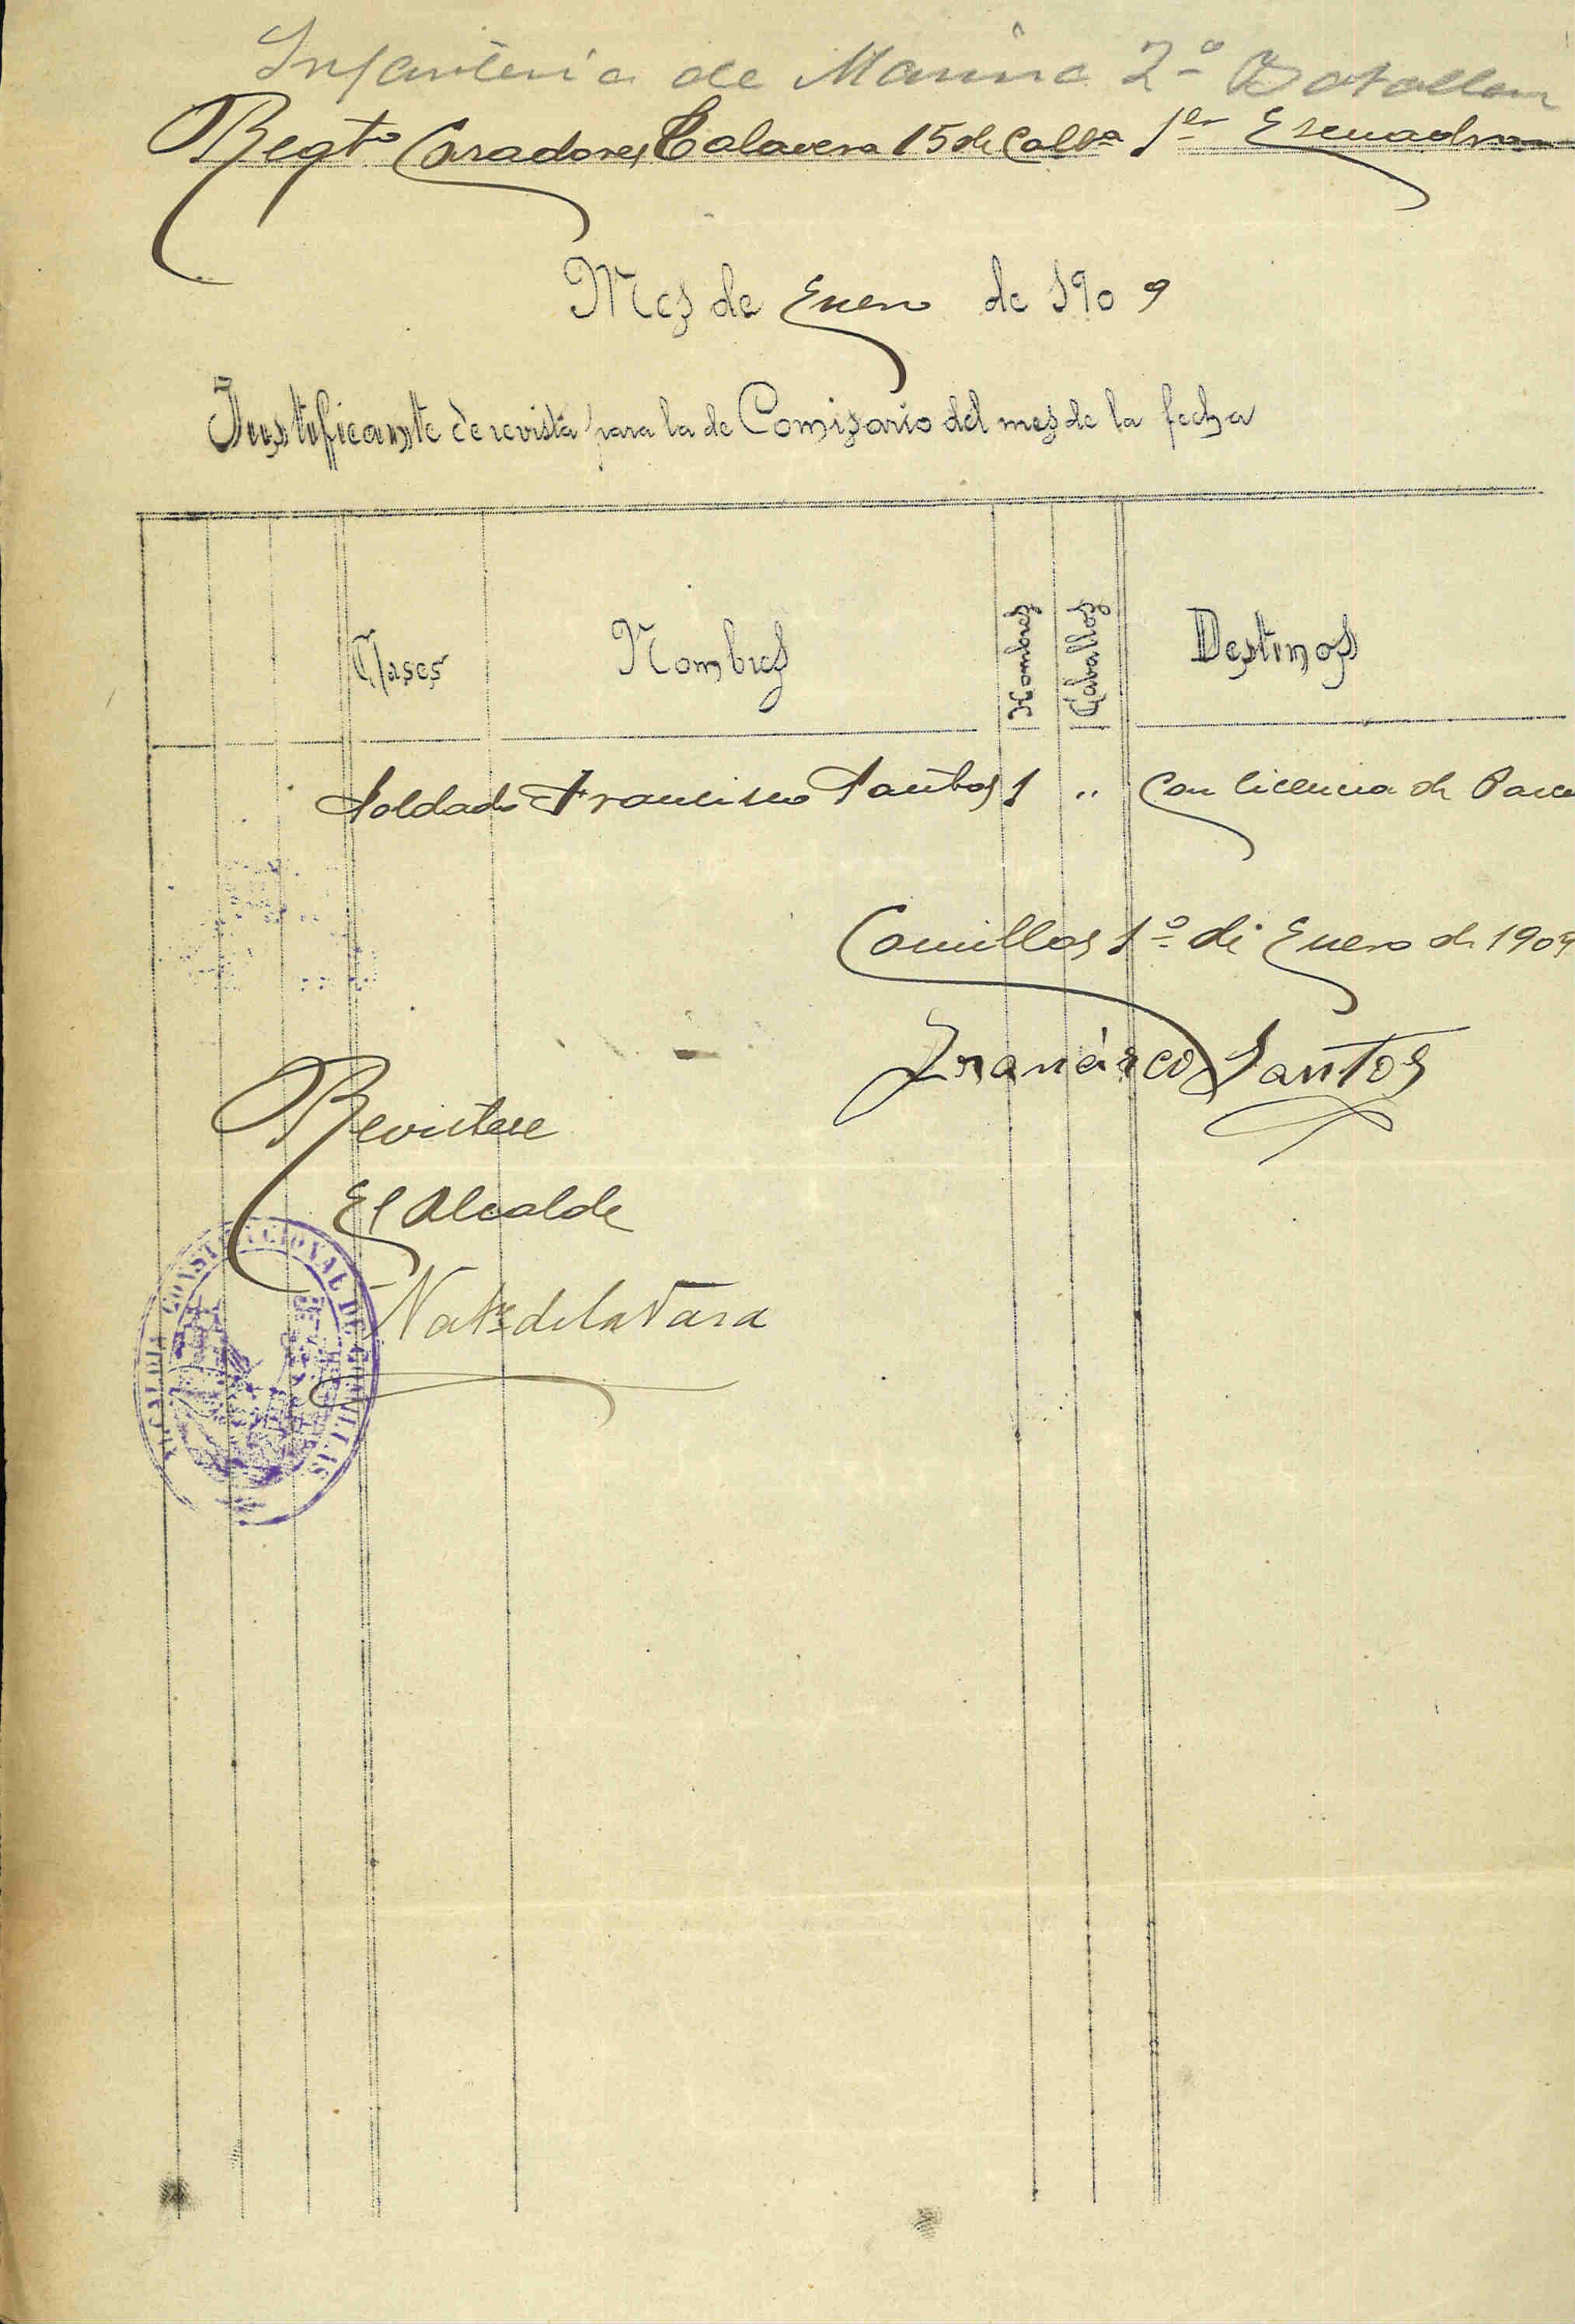 Infanteria de Marina 2º Batallon
Regto Cazadores Talavera 15 de Cabª 1er Escuadron
Mes de Enero de 1909
Justificante de revista para la de Comisario del mes de la fecha
Clases Nombres Hombres Caballos Destinos
Soldado Francisco Santos 1 " Con licencia de
Comillas 1º de Enero de 1909
Francisco Santos
Revistese
El Alcalde
de la Vara
ALCALDIA CONSTITUCIONAL DE COMILLAS